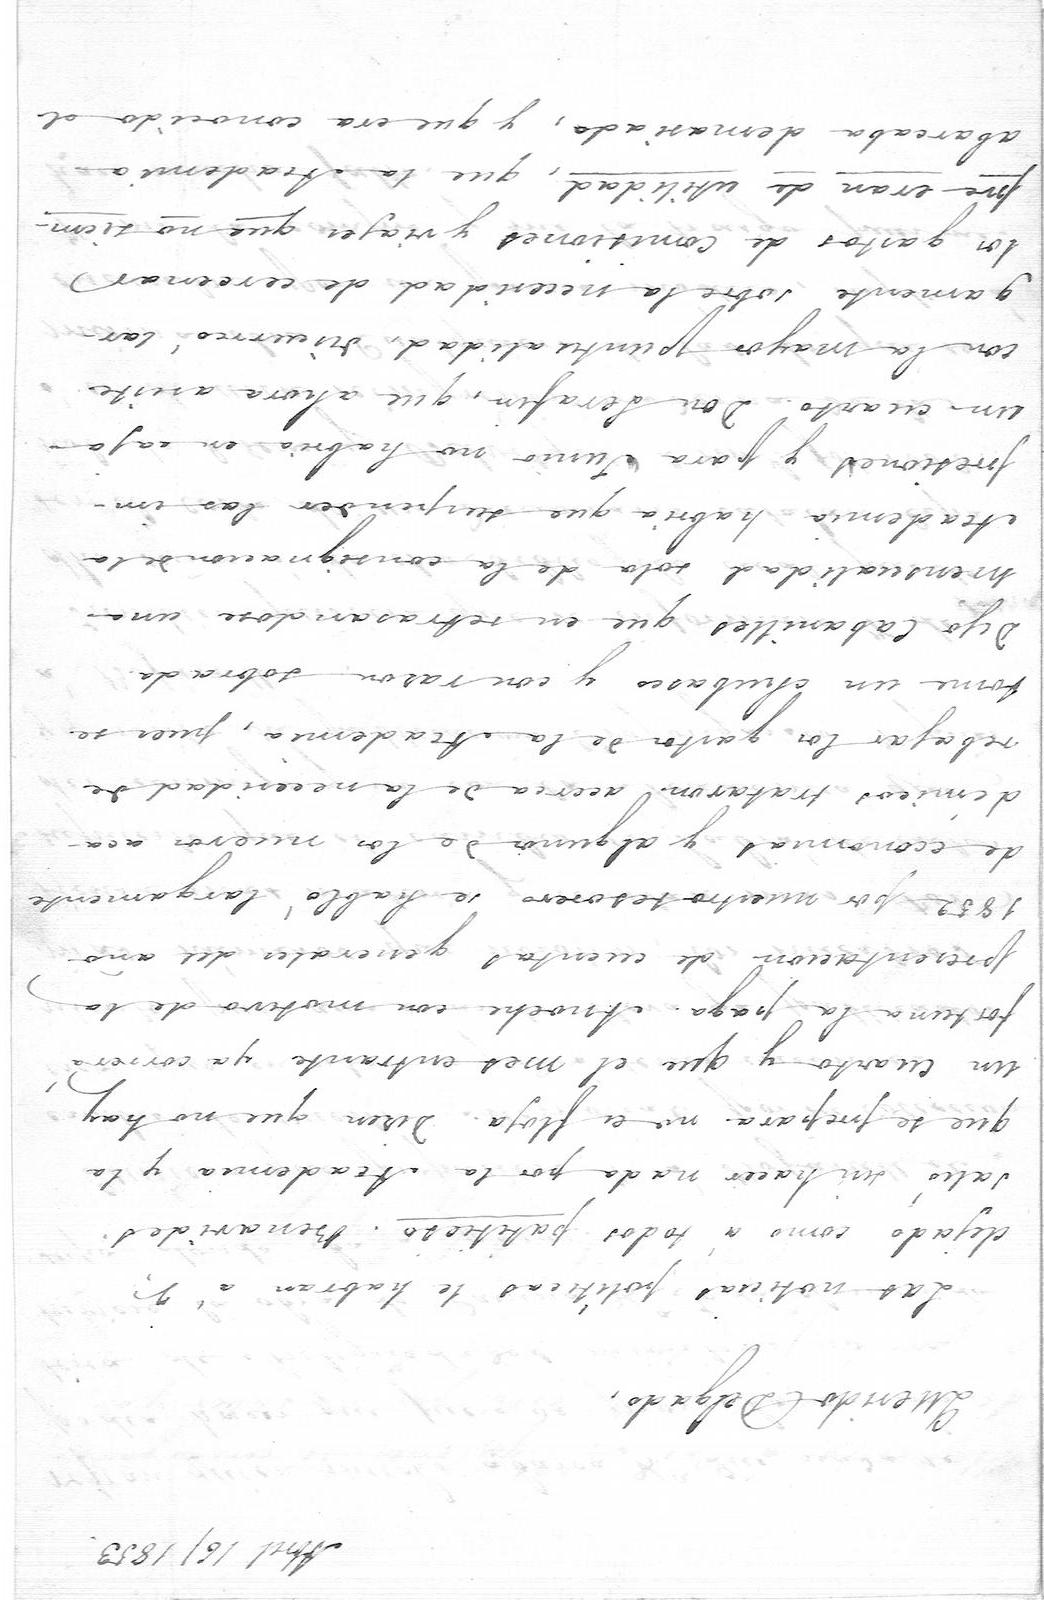 Abril 16/1853.
Querido Delgado,
Las noticias políticas le habran á V.
dejado como á todos patitieso. Benavides
salió sin hacer nada por la Academia y la
que se prepara no es floja. Dicen que no hay
un cuarto y que el mes entrante ya correrá
fortuna la paga. Anoche con motivo de la
presentacion de cuentas generales del año
1852 por nuestro tesorero se habló largamente
de economias y algunos de los nuevos aca-
démicos trataron acerca de la necesidad de
rebajar los gastos de la Academia, pues se
teme un chubasco y con razon sobrada.
Dijo Cabanilles que en retrasandose una
mensualidad sola de la consignacion de la
Academia habria que suspender las im-
presiones y para Junio no habria en caja
un cuarto. Don Serafin, que ahora asiste
con la mayor puntualidad, discurrió lar-
gamente sobre la necesidad de cercenar
los gastos de comisiones y viajes que no siem-
pre eran de utilidad, que la Academia
abarcaba demasiado, y que era conocido el